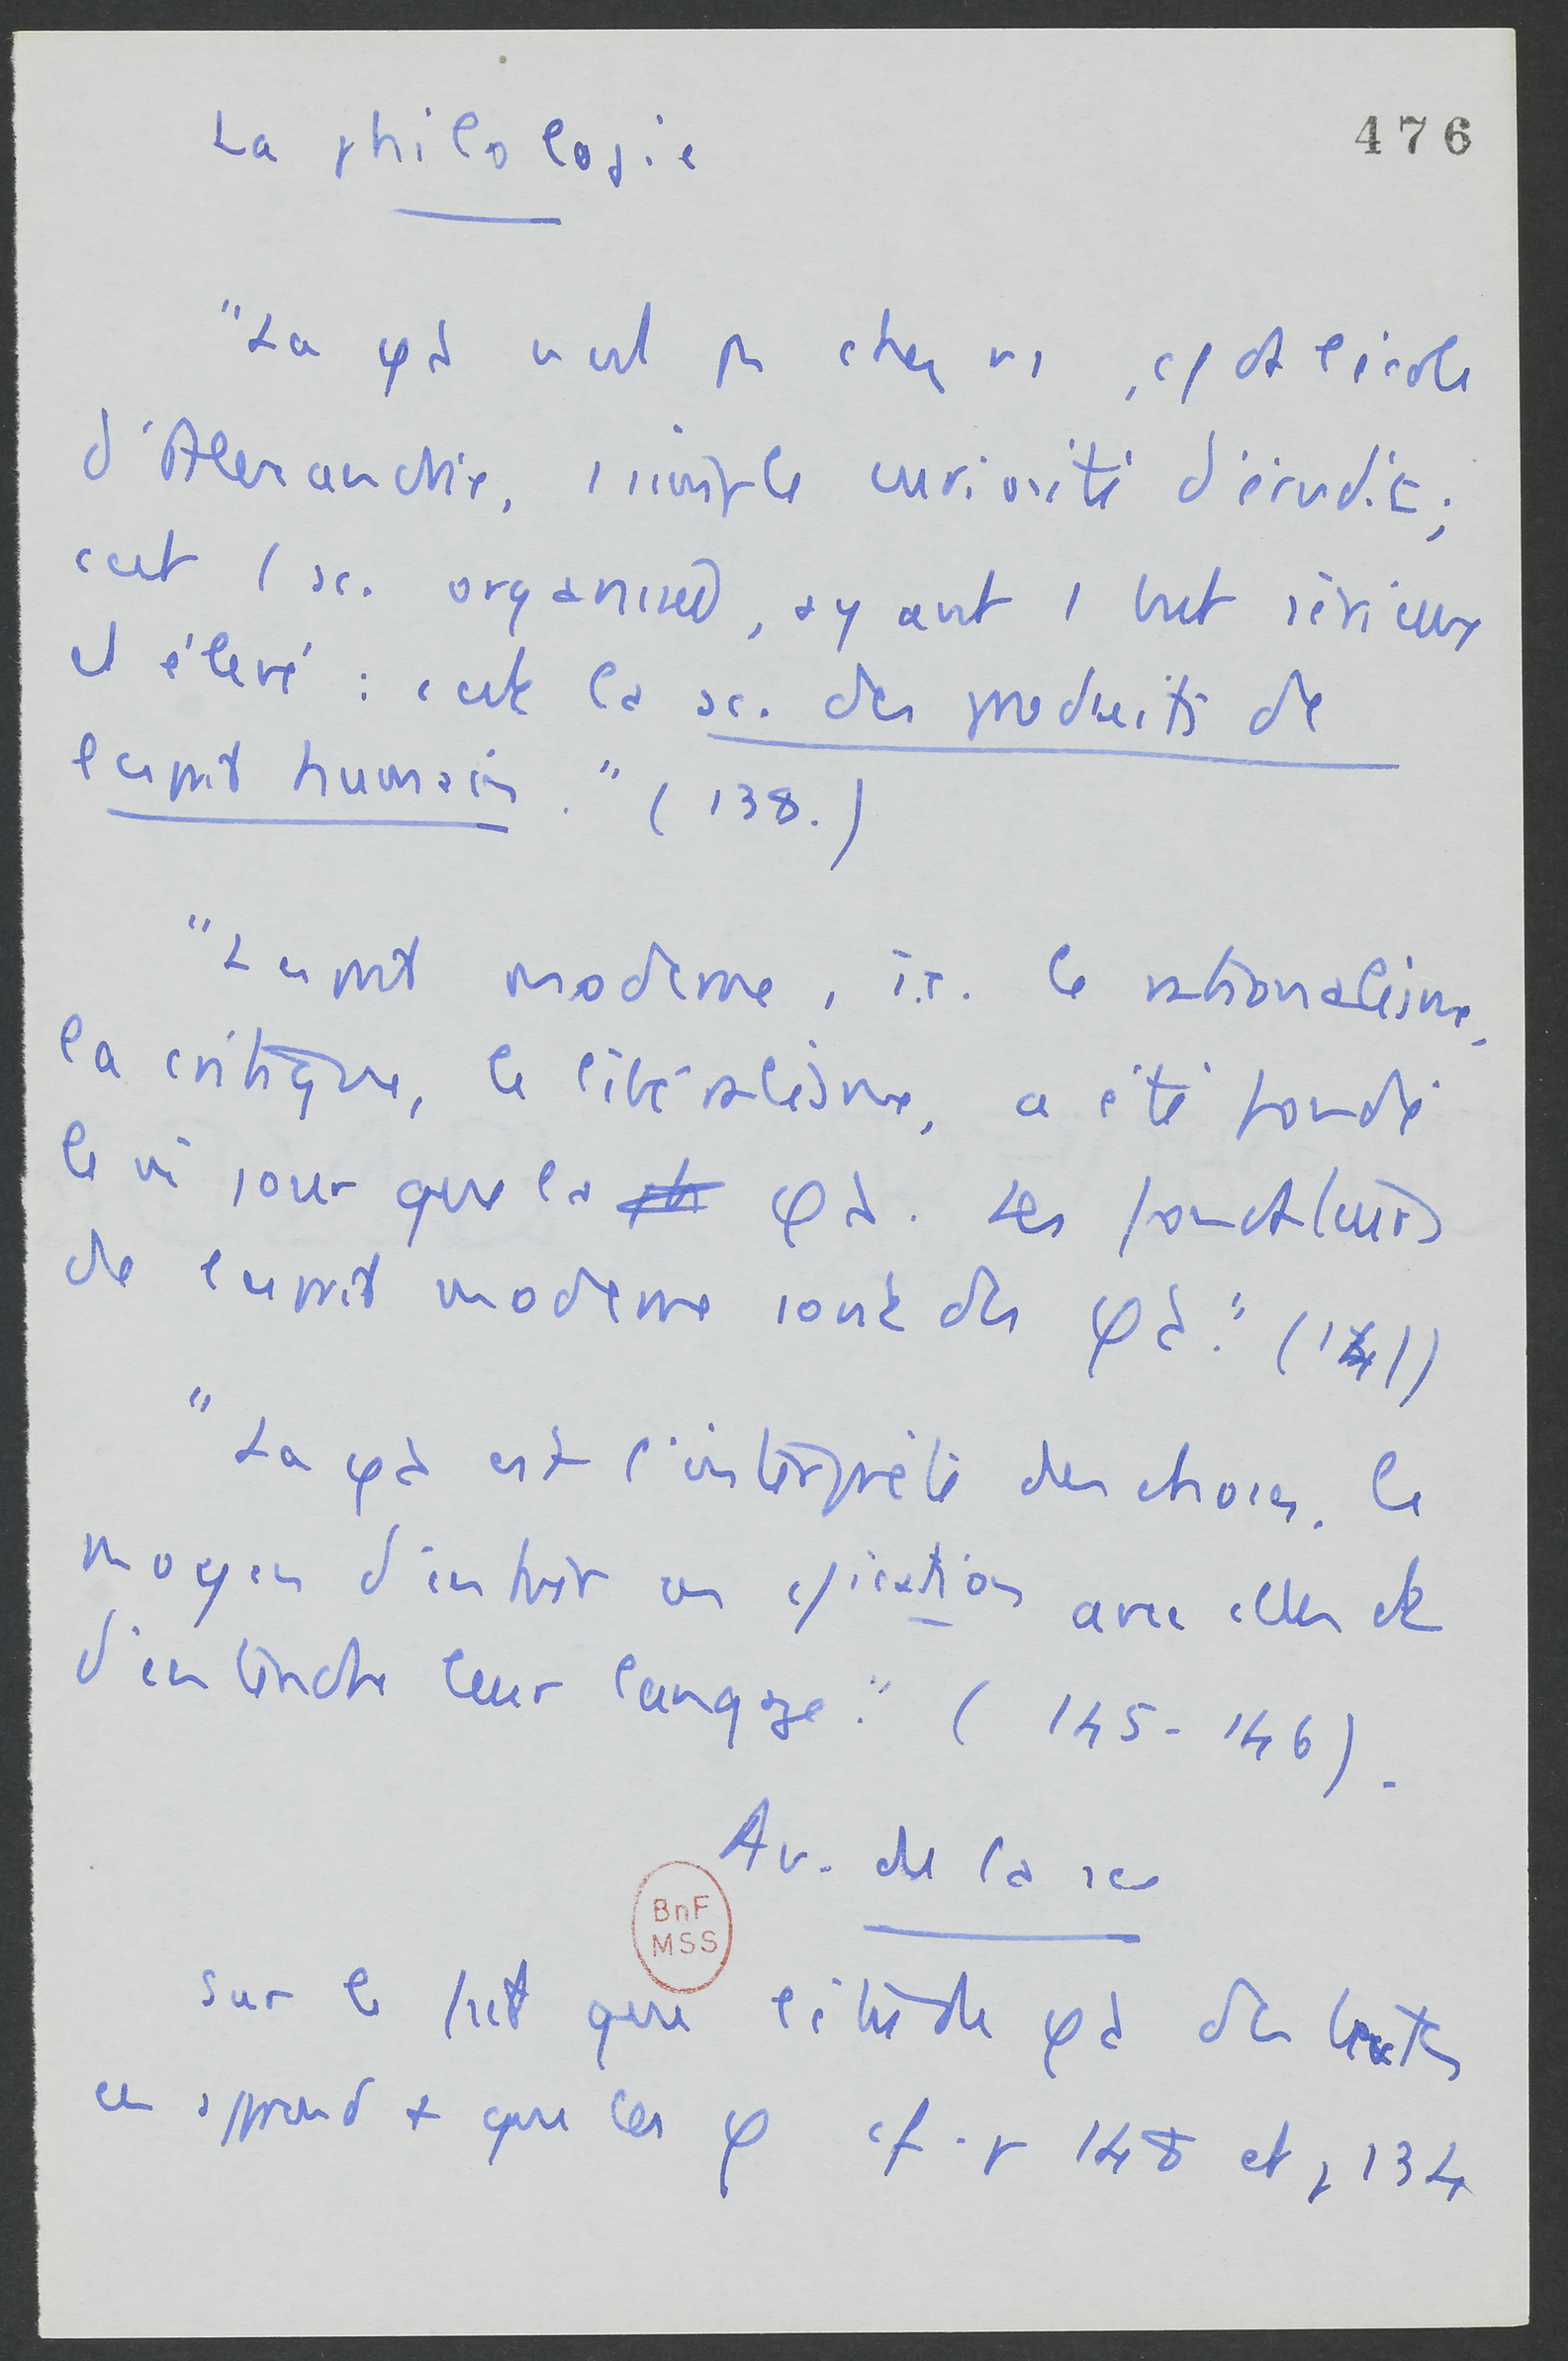 476
La philologie
"La φλ n'est pas chez ns, c/ ds l'école
d'Alexandrie, 1 simple curiosité d'érudit;
c'est 1 sc. organisée, ayant 1 but sérieux
et élevé : c'est la sc. des produits de
l'esprit humain." (138.)
"L'esprit moderne, i.e. le rationalisme,
la critique, le libéralisme, a été fondé
le m̂ jour que la φλ. Les fondateurs
de l'esprit moderne sont des φλ." (141)
"La φλ est l'interprète des choses, le
moyen d'entrer en c/ication avec elles et
d'entendre leur langage." (145-146).
Av. de la sc
Sur le fait que l'étude φλ des textes
en apprend + que les φ cf. p 148 et p 134
BnF
MSS